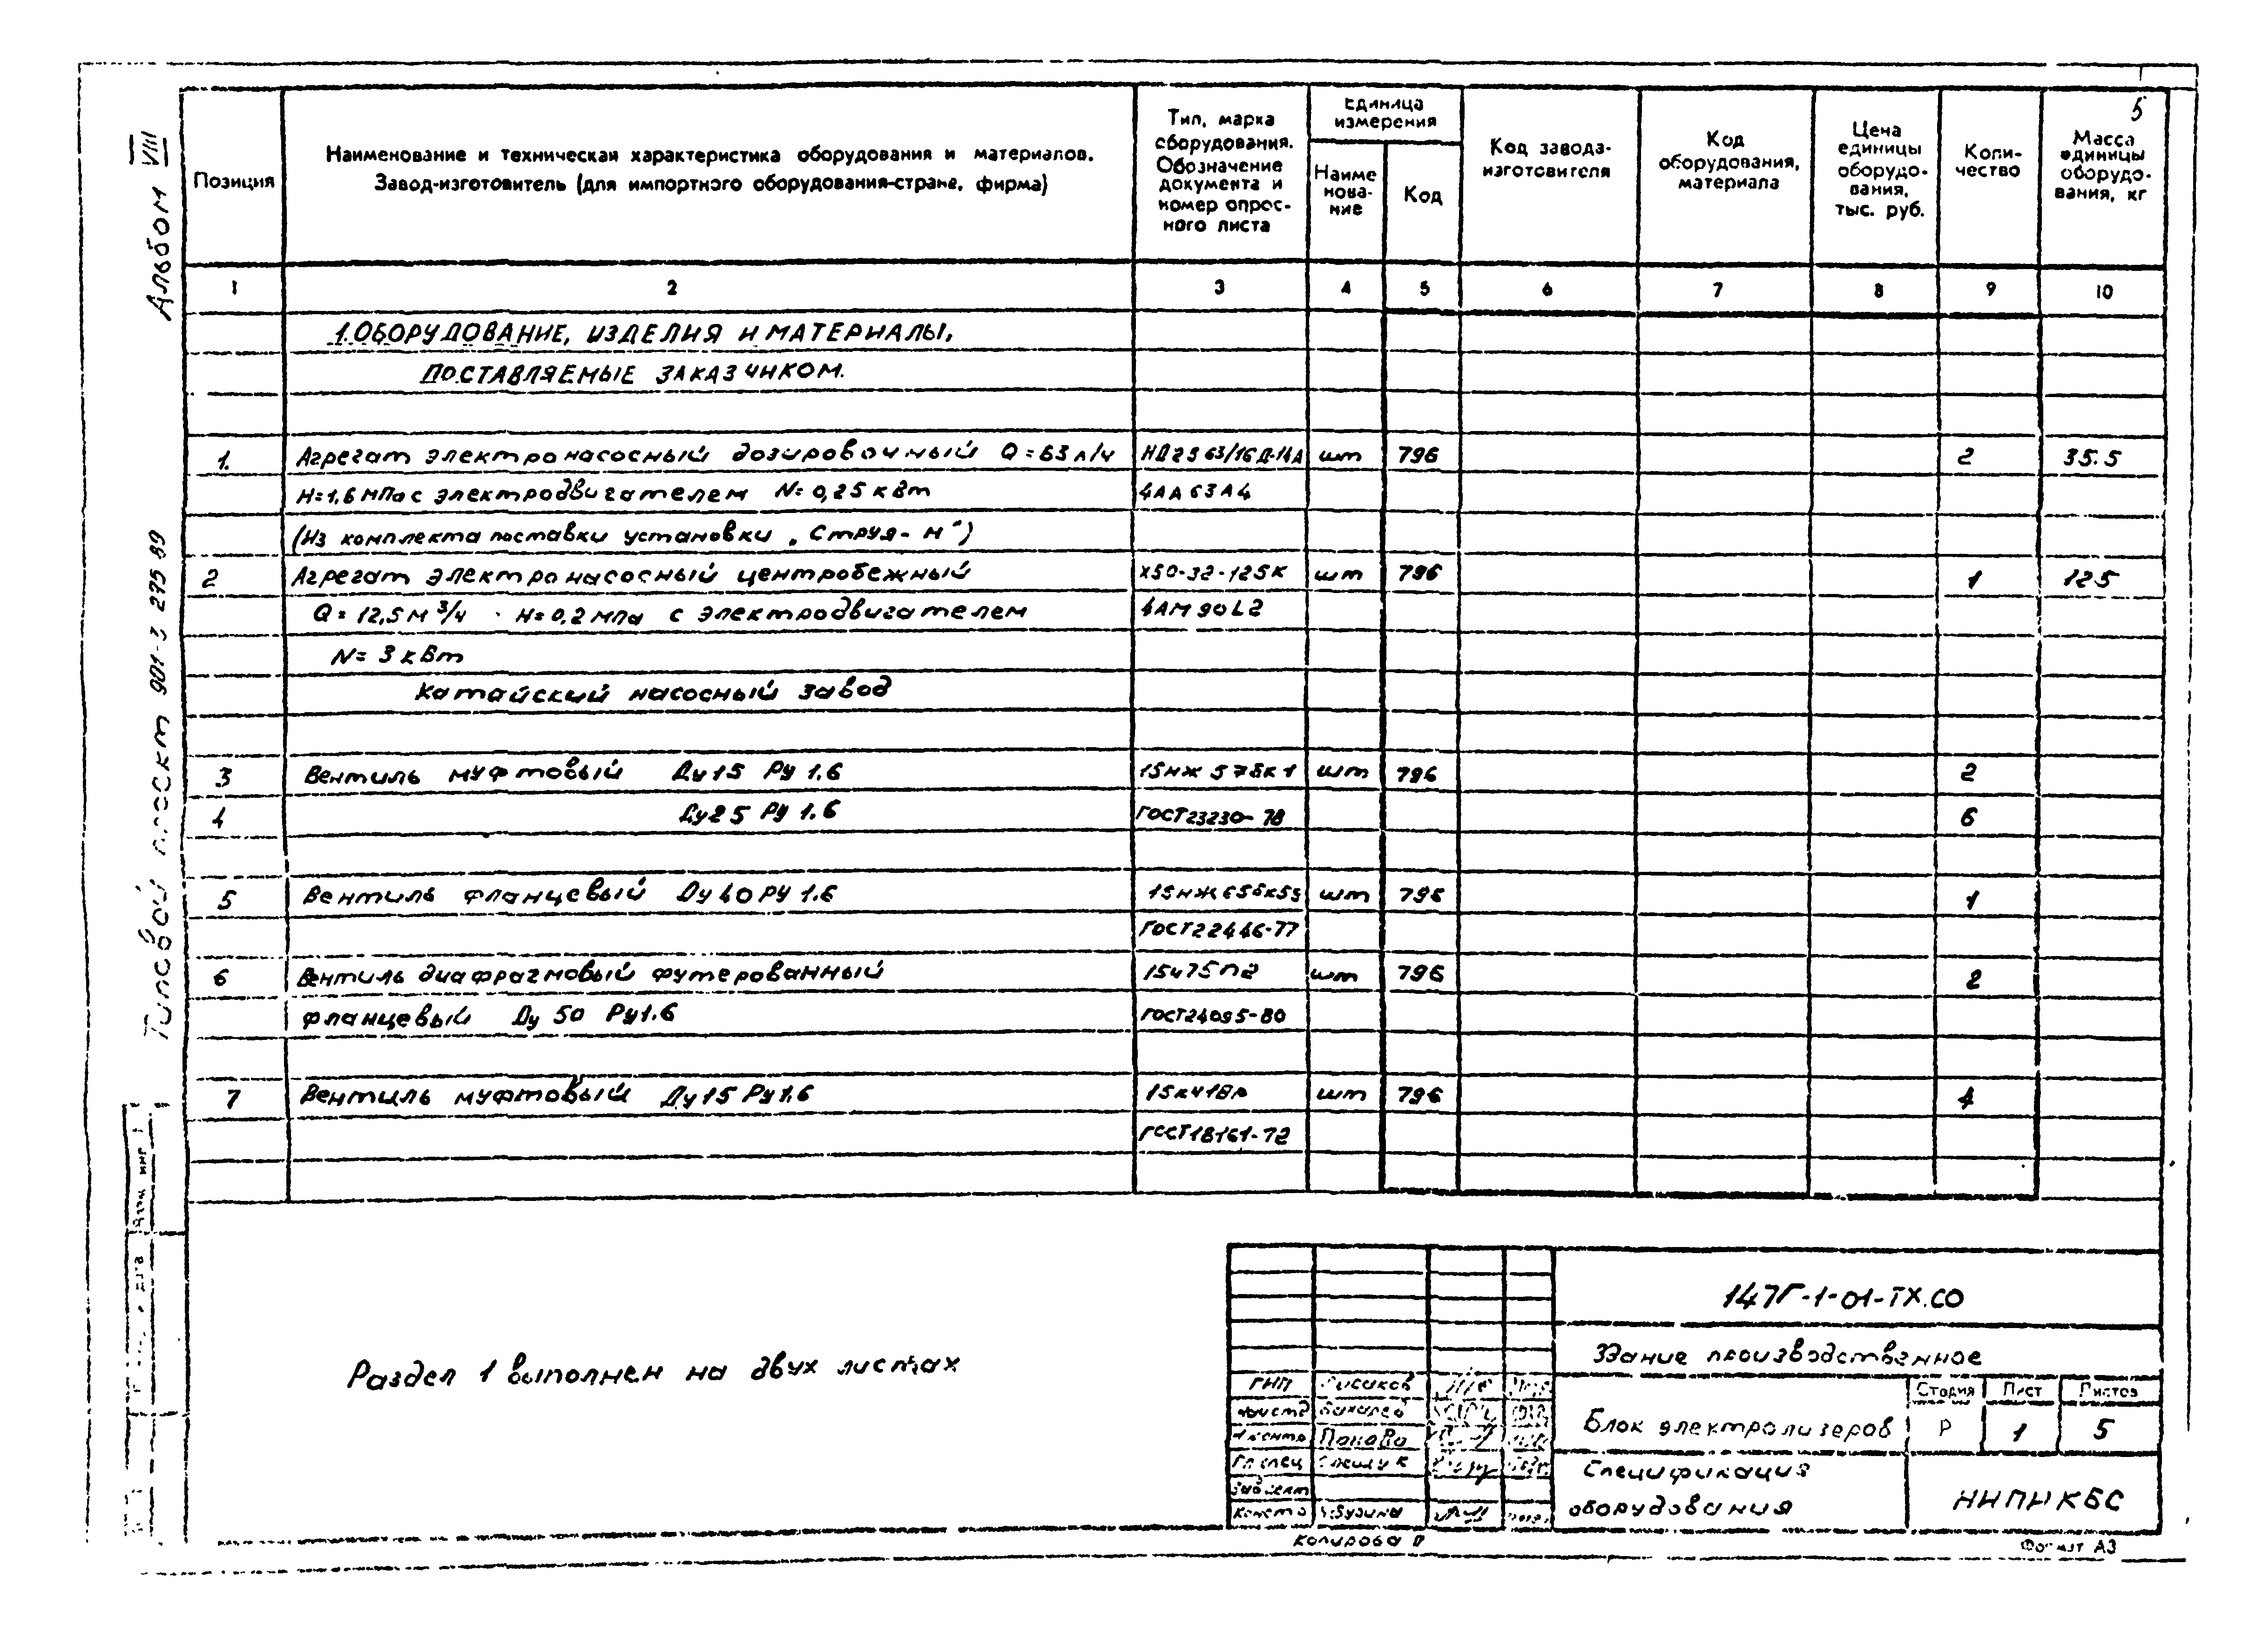 5
Альбом VIII
Типовой проект 901-3 275 89
Позиция
Наименование и техническая характеристика оборудования и материалов.
Завод-изготовитель (для импортного оборудования-страна, фирма)
Тип, марка
оборудования.
Обозначение
документа и
номер опрос-
ного листа
Единица
измерения
Наиме
нова-
ние
Код
Код завода-
изготовителя
Код
оборудования,
материала
Цена
единицы
оборудо-
вания,
тыс. руб.
Коли-
чество
Масса
единицы
оборудо-
вания, кг
1 2 3 4 5 6 7 8 9 10
1. ОБОРУДОВАНИЕ, ИЗДЕЛИЯ И МАТЕРИАЛЫ,
ПОСТАВЛЯЕМЫЕ ЗАКАЗЧИКОМ.
1. Агрегат электронасосный дозировочный Q=63 л/ч шт 796 2 35.5
H=1,6 МПа с электродвигателем N=0,25 кВт 4АА63А4
(Из комплекта поставки установки „Струя-М")
2 Агрегат электронасосный центробежный Х50-32-125К шт 796 1 125
Q=12,5 м³/ч H=0,2 мпа с электродвигателем 4АМ90L2
N=3 кВт
Катайский насосный завод
3 Вентиль муфтовый Ду15 Ру 1.6 шт 796 2
4 Ду25 Ру 1.6 ГОСТ23230-78 6
5 Вентиль фланцевый Ду40 Ру 1.6 шт 796 1
ГОСТ22446-77
6 Вентиль диафрагмовый футерованный 15ч75п2 шт 796 2
фланцевый Ду 50 Ру1.6 ГОСТ24095-80
7 Вентиль муфтовый Ду15 Ру1.6 15кч18р шт 796 4
ГОСТ18161-72
Раздел 1 выполнен на двух листах
147Г-1-01-ТХ.СО
Здание производственное
ГИП
Н.контр Панова
Гл спец
Блок электролизеров
Стадия Лист Листов
Р 1 5
Спецификация
оборудования
НИПИКБС
Копировал
Формат А3